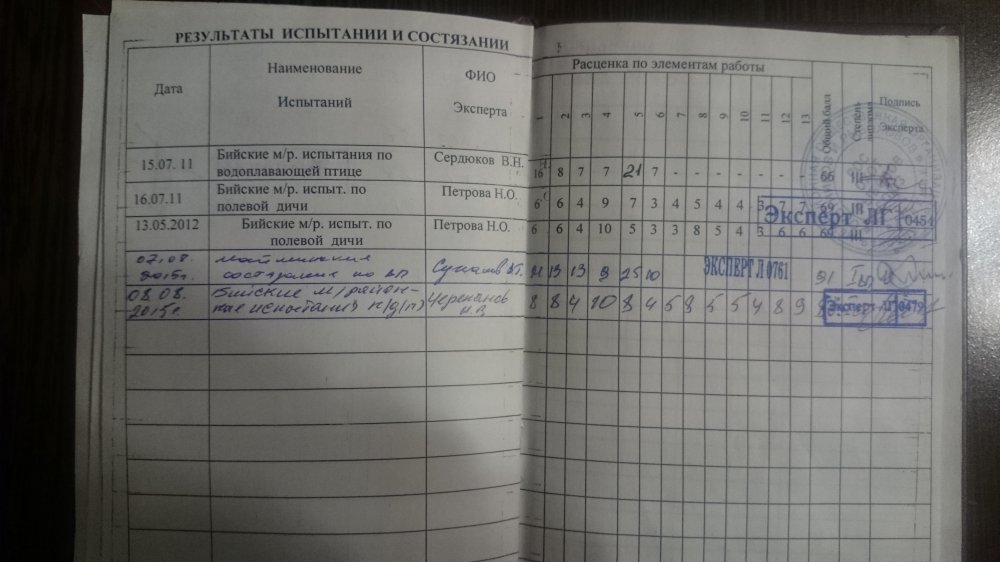 РЕЗУЛЬТАТЫ ИСПЫТАНИИ И СОСТЯЗАНИИ
Дата
Наименование
Испытаний
ФИО
Эксперта
Расценка по элементам работы
1 2 3 4 5 6 7 8 9 10 11 12 13
Общий балл
Степень диплома
Подпись
Эксперта
15.07. 11 Бийские м/р. испытания по Сердюков В.Н. 16 8 7 7 21 7 - - - - - - - 66 III
водоплавающей птице
16.07.11 Бийские м/р. испыт. по Петрова Н.О. 6 6 4 9 7 3 4 5 4 4 3 7 7 69 III
полевой дичи
Эксперт ЛГ 0454
13.05.2012 Бийские м/р. испыт. по Петрова Н.О. 6 6 4 10 5 3 3 8 5 4 3 6 6 69 III
полевой дичи
07.08.
2015г. состязания по 13 13 9 25 10 91
ЭКСПЕРТ Л 0761
08.08. Бийские м/район-
2015г. ные испытания 8 8 4 10 8 4 5 8 5 5 4 8 9
Эксперт ЛГ 0479